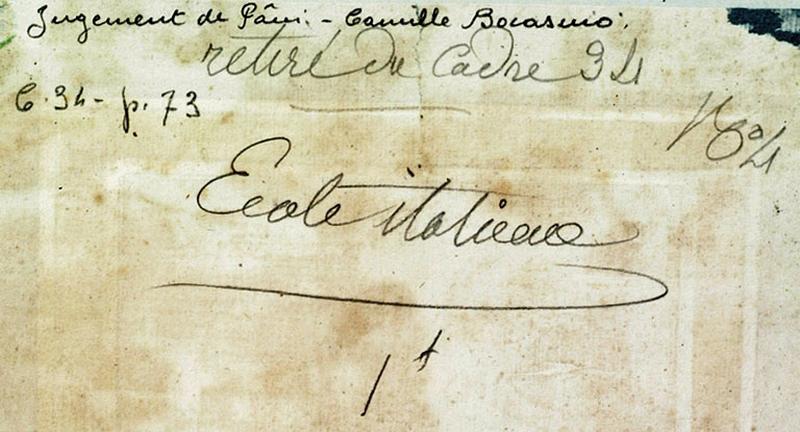 Jugement de Pâris - Camille Bocasino.
retiré du Cadre 34
C. 34 - p. 73
No 4
Ecole italienne
1